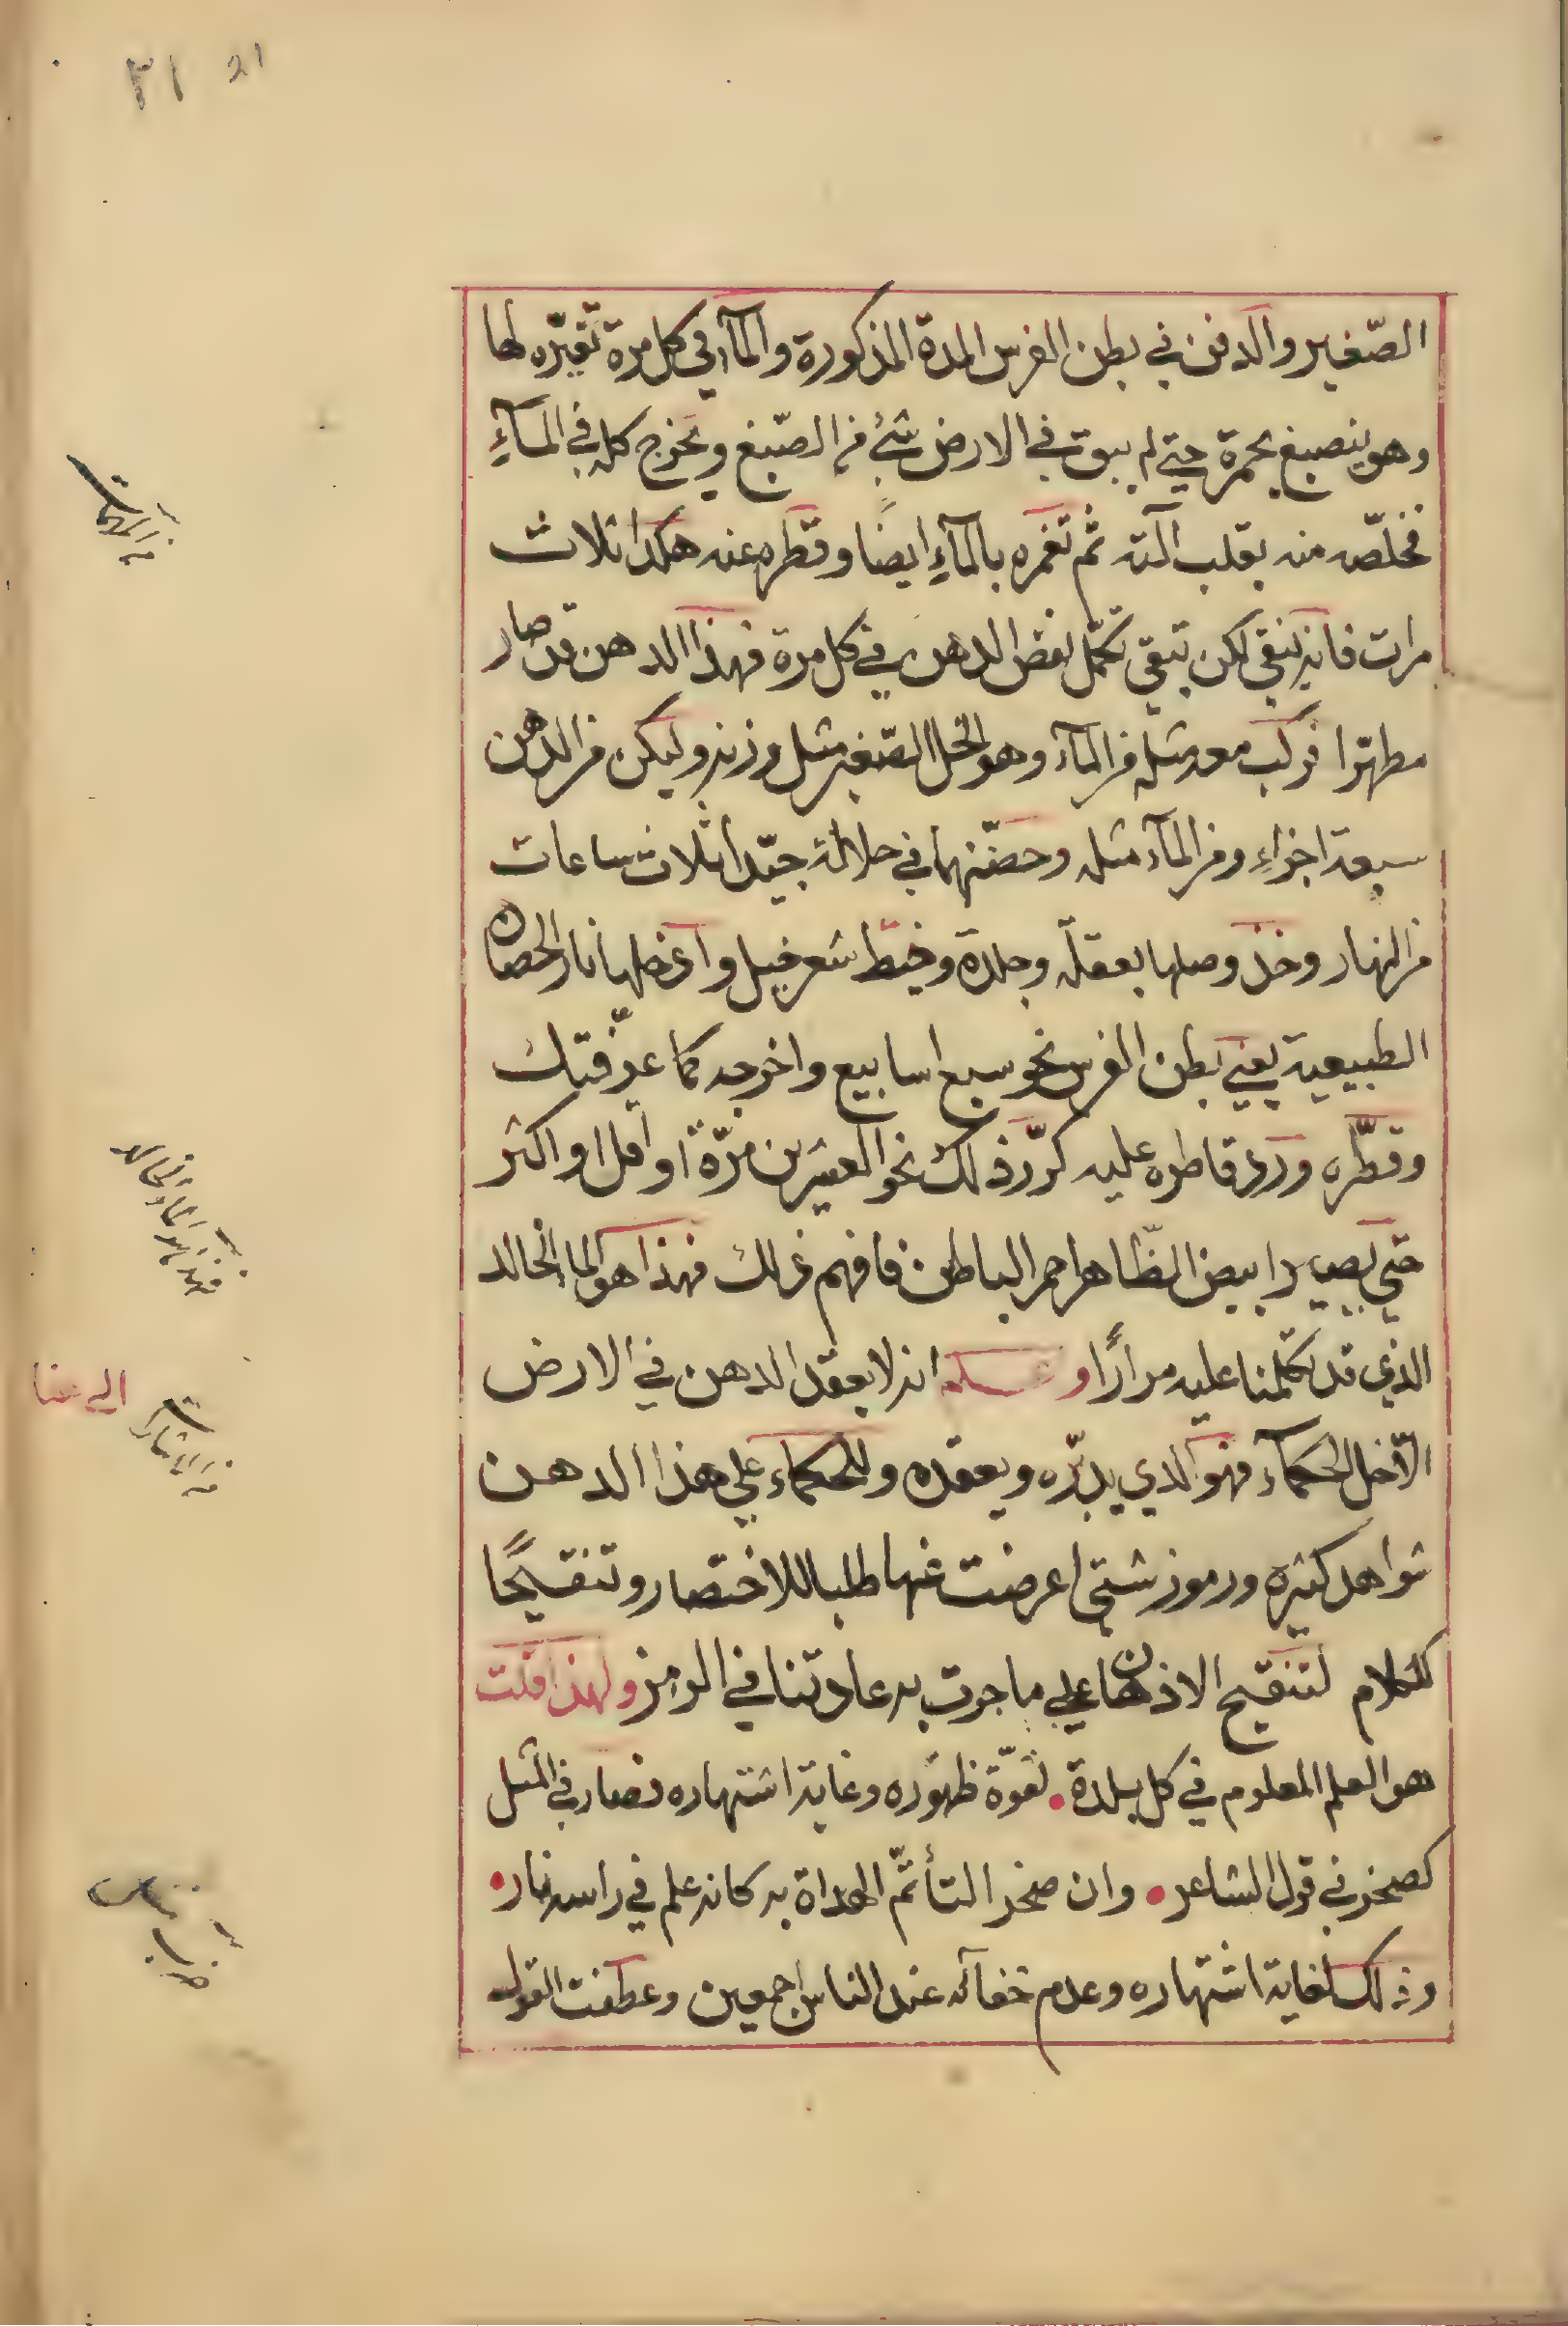 ٢١ 21
الصّغير والدفن في بطن الفرس المدة المذكورة والمآء في كل مرة تغيّره لها
وهو ينصبغ بحمرة حتي لم يبق في الارض شئ من الصّبغ ويخرج كله في المآءِ
فخلّصه منه بقلب آلته ثم تغمره بالمآءِ ايضًا وقطره عنه هكذا ثلاث
مرات فانه ينقي لكن تبقي تكمّل نقض الدهن في كل مرة فهذا الدهن قد صار
مطهّرا فركب معه مثله من المآء وهو الخل الصّغير مثل وزنه وليكن من الدهن
سبعة اجزاءِ ومن المآء مثله وحضّنهما في حلالة جيّدا ثلاث ساعات
من النهار وخذ وصلها بعقلة وجلدة وخيّط شعر خيل وادخلها نار الحصان
الطبيعية يعني بطن الفرس نحو سبع اسابيع واخرجه كما عرّفتك
وقطّره ورد قاطره عليه كرّر ذلك نحو العشرين مرّة او اقل او اكثر
حتي يصير ابيض الظّاهر احمر الباطن فافهم ذلك فهذا هو الما الخالد
الذي قد تكلمنا عليه مرارًا و انه لا يعقد الدهن في الارض
الّا خل الحكمآء فهو الذي يدبّره ويعقده وللحكماء علي هذا الدهن
شواهد كثيرة ورموز شتي اعرضت عنها طلبا للاختصار وتنقيحًا
للكلام لتنقيح الاذهان علي ما جرت به عادتنا في الرمز ولهذا قلت
هو العلم المعلوم في كل بلدة • لقوّة ظهوره وغاية اشتهاره فصار في المثل
كصخر في قول الشاعر • وان صخر التأتمّ الهداة به كانه علم في راسه نار •
وذلك لغاية اشتهاره وعدم خفآئه عند الناس اجمعين وعطفت القول
فهذا هو الماء الخالد